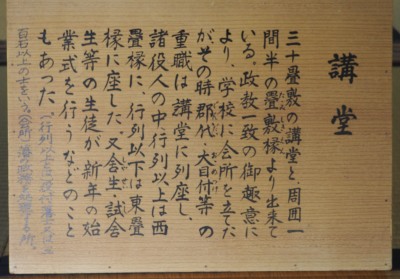 講堂
三十疊敷の講堂と、周囲一
間半の疊敷椽より出来て
いる。政教一致の御趣意に
より、学校に会所を立てた
がその時郡代・大目付等の
重職は講堂に列座し、
諸役人の中行列以上は西
疊椽に、行列以下は東疊
椽に座した。又舎生、試舎
生等の生徒が新年の始
業式を行うなどのこと
もあった（行列以上とは
百石以上の士をいう。会所